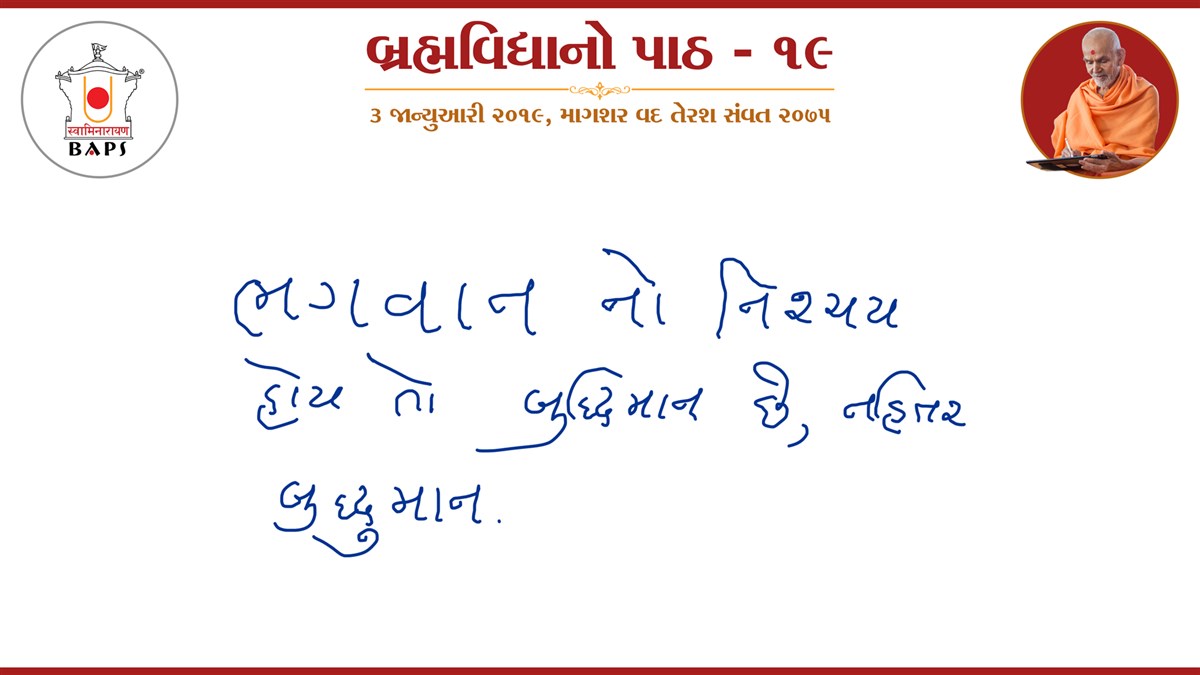 બ્રહ્મવિદ્યાનો પાઠ - ૧૯
૩ જાન્યુઆરી ૨૦૧૯, માગશર વદ તેરશ સંવત ૨૦૭૫
स्वामिनारायण
BAPS
ભગવાન નો નિશ્ચય
હોય તો બુદ્ધિમાન છે, નહિતર
બુદ્ધુમાન.